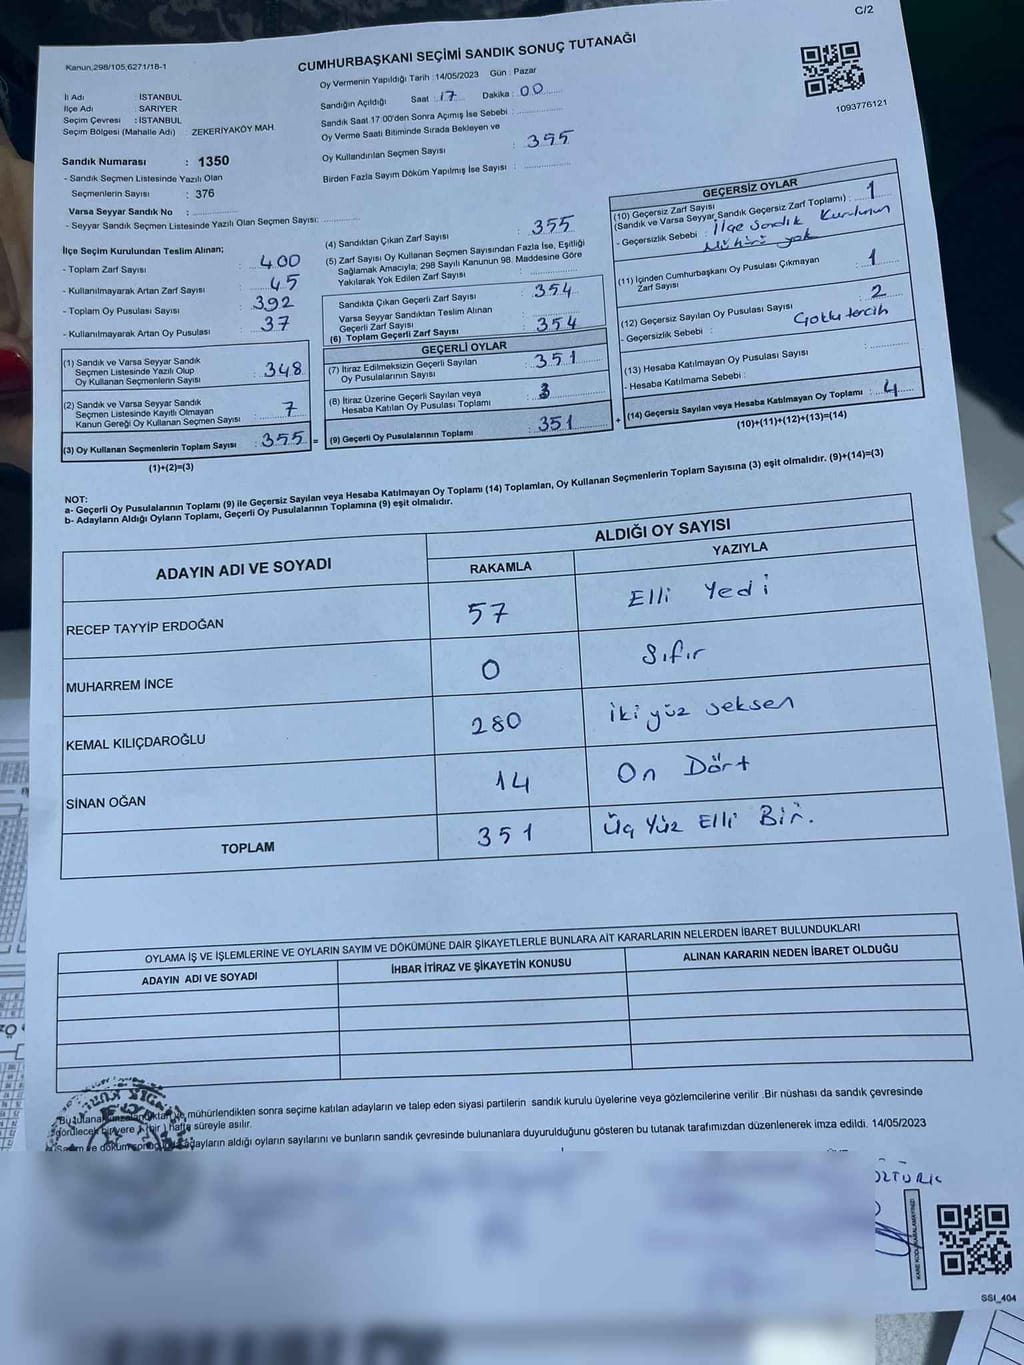 C/2
Kanun,298/105;6271/18-1
CUMHURBAŞKANI SEÇİMİ SANDIK SONUÇ TUTANAĞI
1093776121
İl Adı : İSTANBUL
İlçe Adı : SARIYER
Seçim Çevresi : İSTANBUL
Seçim Bölgesi (Mahalle Adı) : ZEKERİYAKÖY MAH.
Oy Vermenin Yapıldığı Tarih : 14/05/2023 Gün : Pazar
Sandığın Açıldığı Saat : 17 Dakika : 00
Sandık Saat 17:00'den Sonra Açımış İse Sebebi :
Oy Verme Saati Bitiminde Sırada Bekleyen ve
Oy Kullandırılan Seçmen Sayısı : 355
Birden Fazla Sayım Döküm Yapılmış İse Sayısı :
Sandık Numarası : 1350
- Sandık Seçmen Listesinde Yazılı Olan
Seçmenlerin Sayısı : 376
Varsa Seyyar Sandık No :
- Seyyar Sandık Seçmen Listesinde Yazılı Olan Seçmen Sayısı:
İlçe Seçim Kurulundan Teslim Alınan;
- Toplam Zarf Sayısı : 400
- Kullanılmayarak Artan Zarf Sayısı : 45
- Toplam Oy Pusulası Sayısı : 392
- Kullanılmayarak Artan Oy Pusulası : 37
(1) Sandık ve Varsa Seyyar Sandık
Seçmen Listesinde Yazılı Olup
Oy Kullanan Seçmenlerin Sayısı : 348
(2) Sandık ve Varsa Seyyar Sandık
Seçmen Listesinde Kayıtlı Olmayan
Kanun Gereği Oy Kullanan Seçmen Sayısı : 7
(3) Oy Kullanan Seçmenlerin Toplam Sayısı : 355 =
(1)+(2)=(3)
(4) Sandıktan Çıkan Zarf Sayısı : 355
(5) Zarf Sayısı Oy Kullanan Seçmen Sayısından Fazla İse, Eşitliği
Sağlamak Amacıyla; 298 Sayılı Kanunun 98. Maddesine Göre
Yakılarak Yok Edilen Zarf Sayısı :
Sandıkta Çıkan Geçerli Zarf Sayısı : 354
Varsa Seyyar Sandıktan Teslim Alınan
Geçerli Zarf Sayısı :
(6) Toplam Geçerli Zarf Sayısı : 354
GEÇERLİ OYLAR
(7) İtiraz Edilmeksizin Geçerli Sayılan
Oy Pusulalarının Sayısı : 351
(8) İtiraz Üzerine Geçerli Sayılan veya
Hesaba Katılan Oy Pusulası Toplamı :
(9) Geçerli Oy Pusulalarının Toplamı : 351 +
GEÇERSİZ OYLAR
(10) Geçersiz Zarf Sayısı
(Sandık ve Varsa Seyyar Sandık Geçersiz Zarf Toplamı) : 1
- Geçersizlik Sebebi : İlçe Sandık Kurulunun
Mührü yok
(11) İçinden Cumhurbaşkanı Oy Pusulası Çıkmayan
Zarf Sayısı : 1
(12) Geçersiz Sayılan Oy Pusulası Sayısı : 2
- Geçersizlik Sebebi : Çoklu tercih
(13) Hesaba Katılmayan Oy Pusulası Sayısı :
- Hesaba Katılmama Sebebi :
(14) Geçersiz Sayılan veya Hesaba Katılmayan Oy Toplamı : 4
(10)+(11)+(12)+(13)=(14)
NOT:
a- Geçerli Oy Pusulalarının Toplamı (9) ile Geçersiz Sayılan veya Hesaba Katılmayan Oy Toplamı (14) Toplamları, Oy Kullanan Seçmenlerin Toplam Sayısına (3) eşit olmalıdır. (9)+(14)=(3)
b- Adayların Aldığı Oyların Toplamı, Geçerli Oy Pusulalarının Toplamına (9) eşit olmalıdır.
ADAYIN ADI VE SOYADI
ALDIĞI OY SAYISI
RAKAMLA YAZIYLA
RECEP TAYYİP ERDOĞAN 57 Elli Yedi
MUHARREM İNCE 0 Sıfır
KEMAL KILIÇDAROĞLU 280 iki yüz seksen
SİNAN OĞAN 14 On Dört
TOPLAM 351 Üç Yüz Elli Bir.
OYLAMA İŞ VE İŞLEMLERİNE VE OYLARIN SAYIM VE DÖKÜMÜNE DAİR ŞİKAYETLERLE BUNLARA AİT KARARLARIN NELERDEN İBARET BULUNDUKLARI
ADAYIN ADI VE SOYADI İHBAR İTİRAZ VE ŞİKAYETİN KONUSU ALINAN KARARIN NEDEN İBARET OLDUĞU
Bu tutanak mühürlendikten sonra seçime katılan adayların ve talep eden siyasi partilerin sandık kurulu üyelerine veya gözlemcilerine verilir .Bir nüshası da sandık çevresinde
görülecek bir yere 1 (bir) hafta süreyle asılır.
adayların aldığı oyların sayılarını ve bunların sandık çevresinde bulunanlara duyurulduğunu gösteren bu tutanak tarafımızdan düzenlenerek imza edildi. 14/05/2023
ÖZTÜRK
KARE KODU KARALAMAYINIZ!
SSI_404